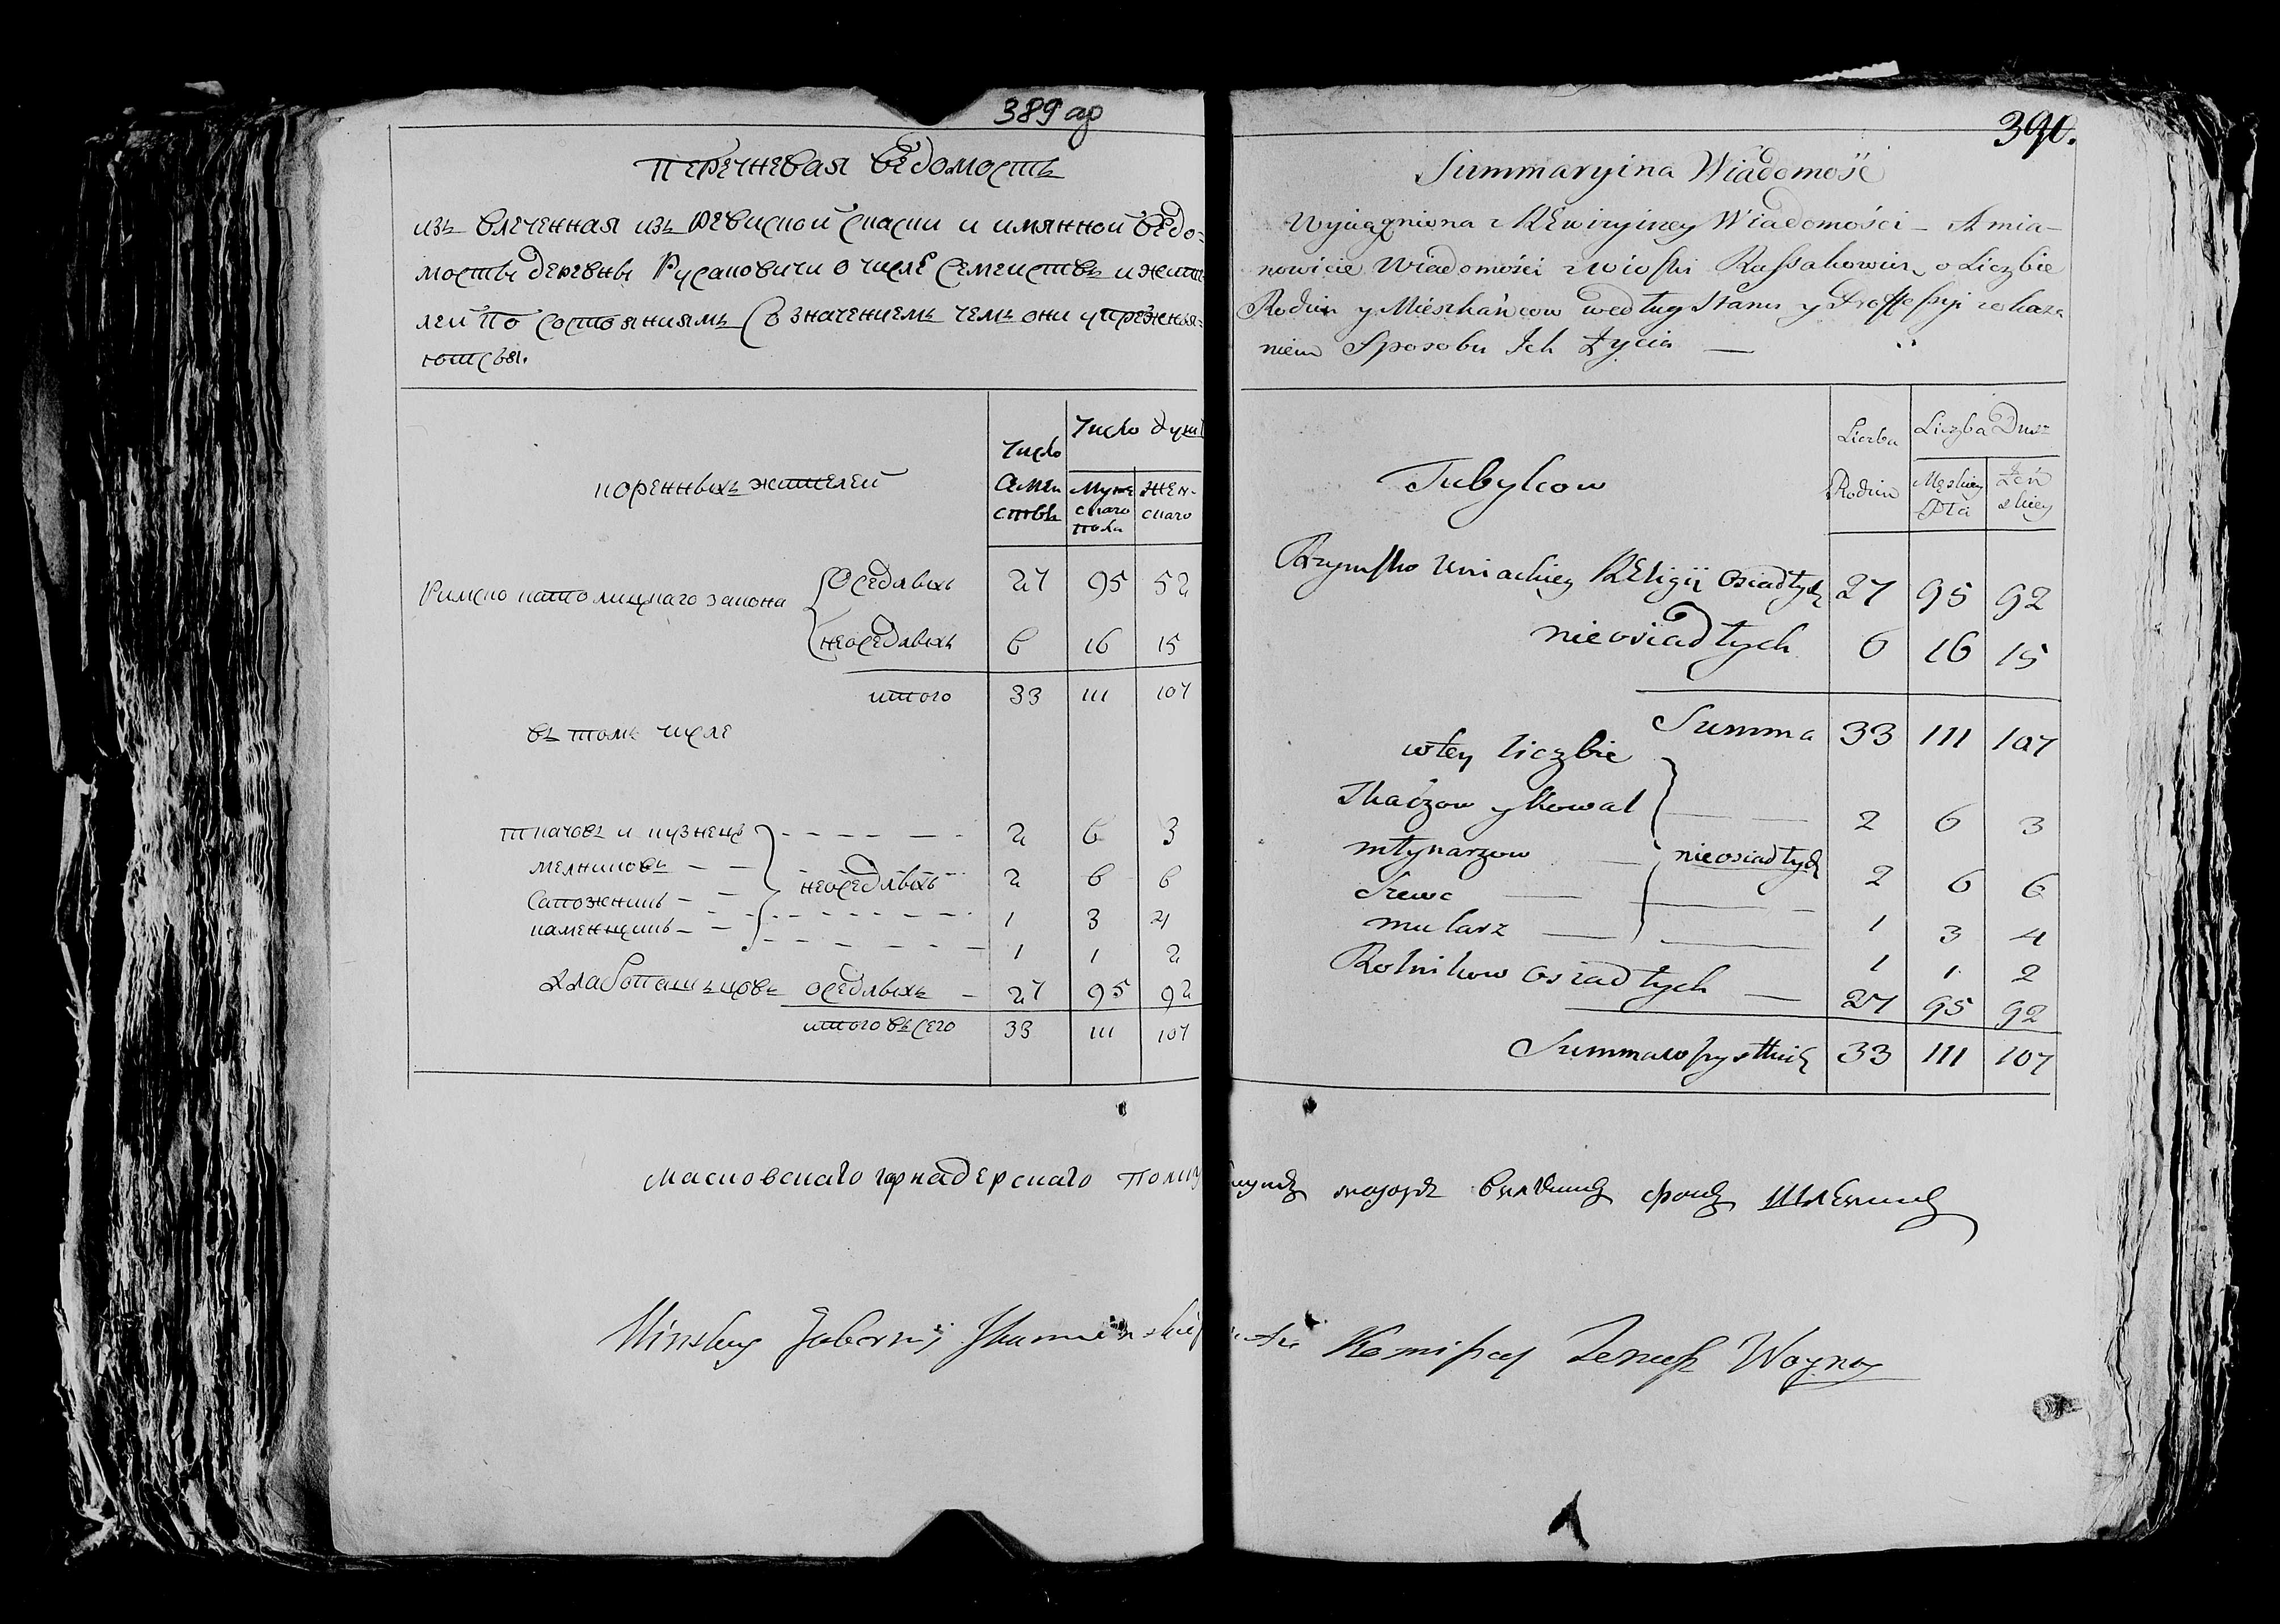 389 ар
Перечневая Ведомость
изъ влеченная изъ Ревиской скаски и имянной Ведо=
мосты деревны Русаковичи о числе семействъ и жите
лей по состояниямъ съ значениемъ чемъ они упрежня=
ютсья.
коренныхъ жителей
Число
Семей
ствъ
Число душ
Мужеского пола
Женского
Римско католицкаго закона
Оседлыхъ 27 95 52
неоседлыхъ 6 16 15
итого 33 111 107
въ томъ числе
ткачовъ и кузнецъ 2 6 3
мелниковъ неоседлыхъ 2 6 6
Сапожникъ 1 3 4
каменщикъ 1 1 2
хлабопашьцовъ оседлыхъ 27 95 92
итого въсего 33 111 107
390.
Summaryina Wiadomość
Wyciągniona z Rewizyiney Wiadomości – A mia–
nowicie Wiadomości z Wioski Russakowicz o Liczbie
Rodzin y Mieszkańcow według Stanu y Professyi z okaza
niem Sposobu Ich Życia —
Tubylcow
Liczba
Rodzin
Liczba Dusz
Męskiey Płci
Żeń skiey
Rzymsko Uniackiey Religii Osiadłych 27 95 92
nieosiadłych 6 16 15
Summa 33 111 107
w tey liczbie
Tkaczow y Kowal 2 6 3
młynarzow nieosiadłych 2 6 6
Szewc 1 3 4
mularz 1 1 2
Rolnikow Osiadłych 27 95 92
Summa wszystkich 33 111 107
Масковскаго гарнадерскаго полку майоръ фонъ
Minskiey Guberni Kommissarz Woyna